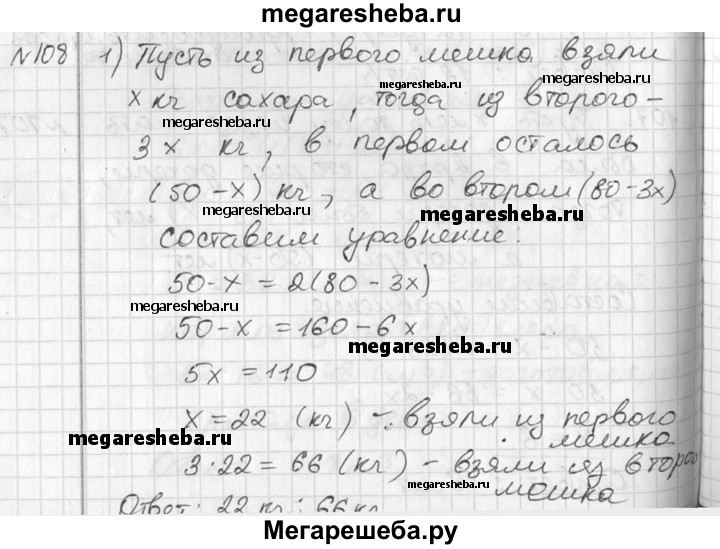 megaresheba.ru
№108 1) Пусть из первого мешка взяли
megaresheba.ru megaresheba.ru
x кг сахара, тогда из второго –
megaresheba.ru megaresheba.ru
3x кг, в первом осталось
(50-x) кг, а во втором (80-3x)
megaresheba.ru megaresheba.ru
составим уравнение:
50-x = 2(80-3x)
megaresheba.ru
50-x = 160-6x
megaresheba.ru
5x = 110
x = 22 (кг) – взяли из первого
мешка
megaresheba.ru megaresheba.ru
3·22 = 66 (кг) – взяли из второго
мешка
megaresheba.ru
Ответ: 22 кг; 66 кг
Мегарешеба.ру